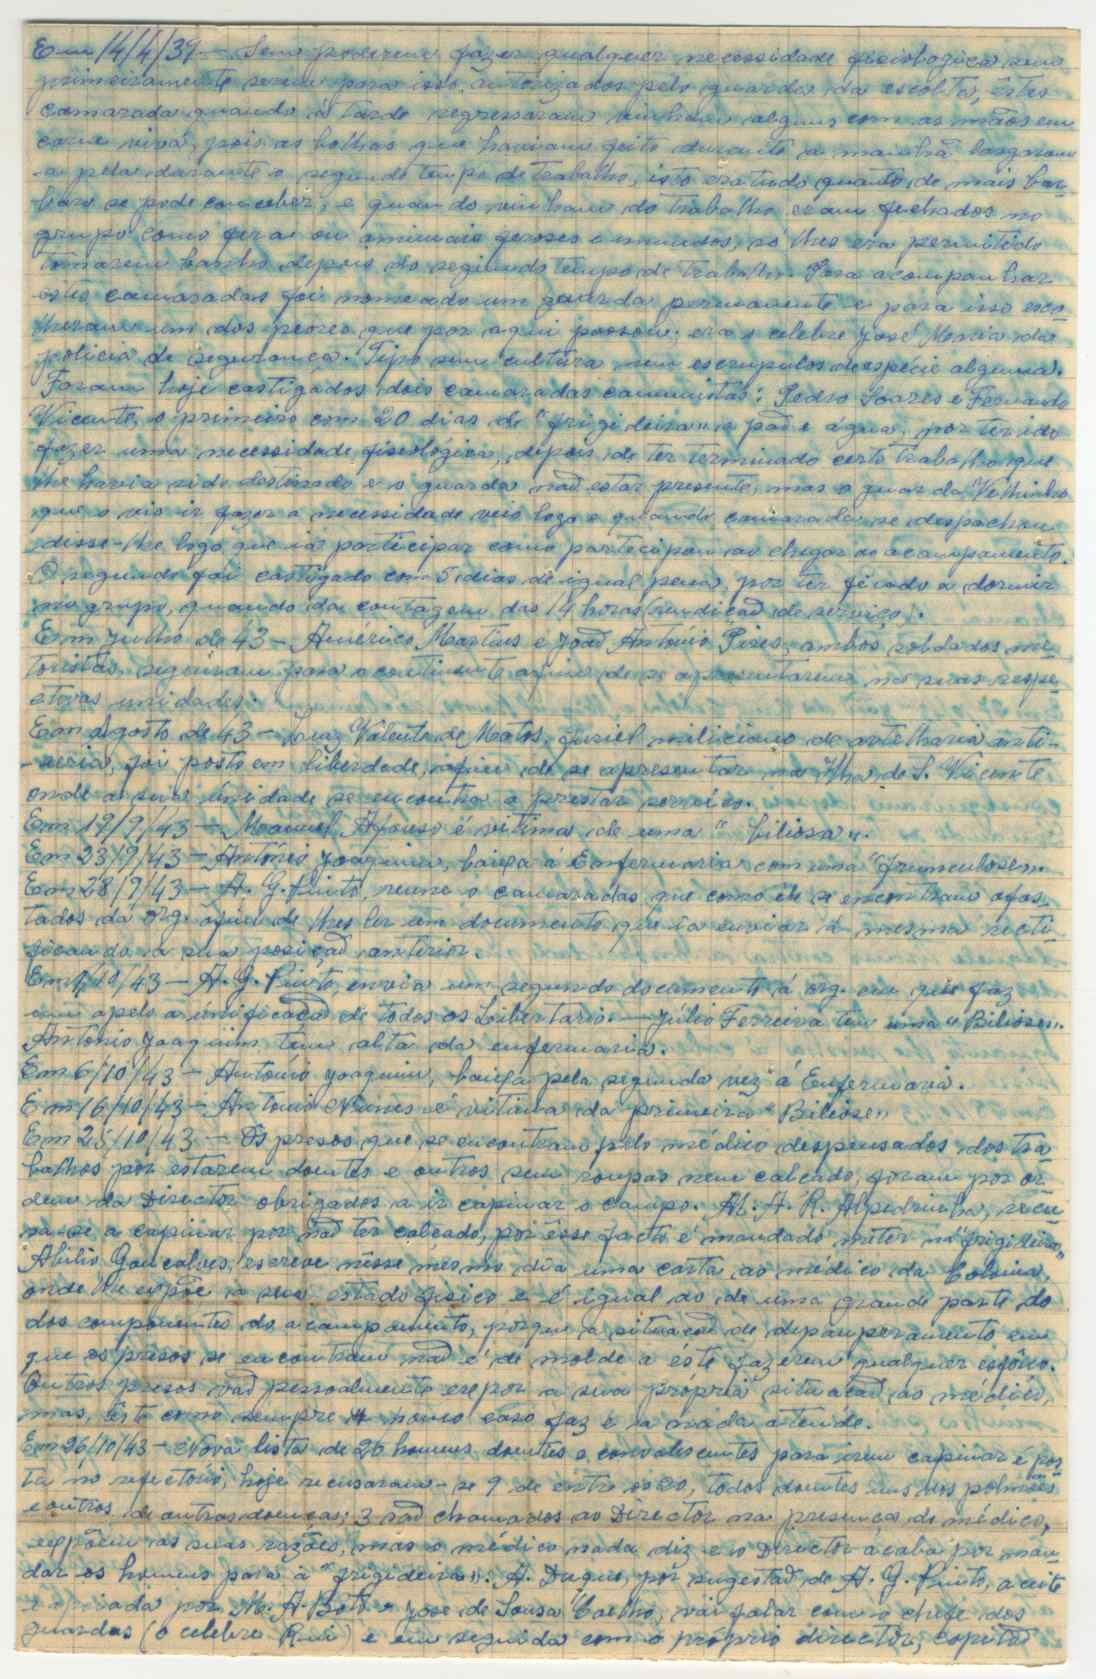 Em 14/4/39 — Sem poderem fazer qualquer necessidade fisiologica sem
primeiramente serem para isso autorizados pelo guarda da escolta, êstes
camaradas quando á tarde regressaram vinham alguns com as mãos em
carne viva, pois as bolhas que haviam feito durante a manhã largaram
a pele durante o segundo tempo de trabalho, isto era tudo quanto de mais bar-
baro se pode conceber, e quando vinham do trabalho eram fechados no
grupo como feras ou animais ferozes e imundos, só lhes era permitido
tomarem banho depois do segundo tempo de trabalho. Para acompanhar
êstes camaradas foi nomeado um guarda permanente e para isso esco-
lheram um dos peores que por aqui passou; era o celebre José Maria da
policia de segurança. Tipo sem cultura nem escrupulos de espécie alguma.
Foram hoje castigados dois camaradas comunistas: Pedro Soares e Fernando
Vicente, o primeiro com 20 dias de "frigideira" a pão e água, por ter ido
fazer uma necessidade fisiológica, depois de ter terminado certo trabalho que
lhe havia sido destinado e o guarda não estar presente, mas o guarda "Velhinho
que o viu ir fazer a necessidade veio logo e quando camarada se despachou
disse-lhe logo que ia participar como participou ao chegar ao acampamento.
O segundo foi castigado com 5 dias de igual pena, por ter ficado a dormir
no grupo, quando da contagem das 14 horas (rendição de serviço).
Em Julho de 43 — Américo Martins e João António Pires, ambos soldados mo-
toristas, seguiram para o continente afim de se apresentarem nas suas respe-
ctivas unidades.
Em Agosto de 43 — Luiz Valente de Matos, furriel miliciano de artelharia anti-
-aeria, foi posto em liberdade, afim de se apresentar na Ilha de S. Vicente,
onde a sua unidade se encontra a prestar serviço.
Em 19/9/43 — Manuel Afonso é vitima de uma "biliosa".
Em 23/9/43 — António Joaquim, baixa á Enfermaria com uma "frunculose".
Em 28/9/43 — A. G. Pinto, reune o camaradas que como êle se encontram afas-
tados da org. afim de lhes ler um documento que ia enviar á mesma recti-
ficando a sua posição anterior.
Em 1/10/43 — A. G. Pinto, envia um segundo documento á org. em que faz
um apelo a únificação de todos os Libertario. — Júlio Ferreira tem uma "Biliose".
António Joaquim têm alta da enfermaria.
Em 6/10/43 — António Joaquim, baixa pela segunda vez á Enfermaria.
Em 16/10/43 — António Nunes é vitima da primeira "Biliose"
Em 25/10/43 — Os presos que se encontram pelo médico despensados dos tra-
balhos por estarem doentes e outros sem roupas nem calçado, foram por or-
dem do Director obrigados a ir capinar o campo. M. A. R. Alpedrinha, recu-
sa-se a capinar por não ter calçado, por êsse facto é mandado meter na "frigideira"
Abilio Gonçalves, escreve nêsse mesmo dia uma carta ao médico da Colonia,
onde lhe expõe o seu estado fisico e é igual ao de uma grande parte do
dos componentes do acampamento, porque a situação de depauperamento em
que os presos se encontram não é de molde a éste fazerem qualquer esfôrço.
Outros presos vão pessoalmente expor a sua própria situação ao médico,
mas, êste como sempre nenhum caso faz e a nada atende.
Em 26/10/43 — Nova lista de 26 homens doentes e convalescentes para irem capinar é pos-
ta no refectorio, hoje recusaram-se 9 de entre eles, todos doentes uns dos pulmões
e outros de outras doenças; 3 são chamados ao Director na presença do médico,
expõem as suas razões, mas o médico nada diz e o Director acaba por man-
dar os homens para a "frigideira". A. Duque, por sugestão de A. G. Pinto, aceite
e apoiada por M. A. Boto e José de Sousa Coelho, vai falar com o chefe dos
guardas (o celebre Rui) e em seguida com o próprio director, capitão